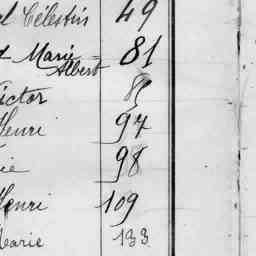 Célestin 49
Marie 81
Albert
ictor 85
Henri 97
ie 98
Henri 109
Marie 133